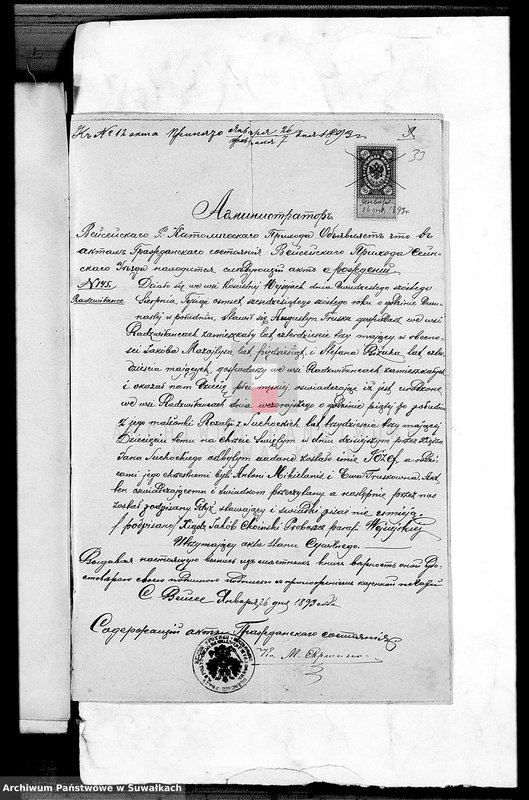 Къ № 12 акта принято Января 26 / Февраля 7 дня 1893 г.
Января
26 дня 1893 г.
Администраторъ
Вейсейскаго Р. Католическаго Прихода Объявляетъ что въ
актахъ Гражданскаго состоянія Вейсейскаго Прихода Сейн-
скаго Уѣзда находится слѣдующій актъ о рожденіи
№ 145.
Radzwitance
Działo się we wsi Kościelnej Wyjejach dnia Dwudziestego szóstego
Sierpnia, Tysiąc ośmset sześćdziesiątego szóstego roku o godzinie Dwu-
nastej w południe, Stawił się Augustyn Truska gospodarz we wsi
Radzwitancach zamieszkały lat czterdzieście trzy mający w obecno-
ści Jakóba Mozolysa lat pięćdziesiąt, i Stefana lat czter-
dzieścia mających, gospodarzy we wsi Radzwitancach zamieszkałych
i okazał nam Dziecię płci męzkiej, oświadczając iż jest urodzone
we wsi Radzwitancach dnia wczorajszego o godzinie piątej po południu
z jego małżonki Rozalji z Suchockich lat trzydzieścia trzy mającej
Dziecięciu temu na Chrzcie Świętym w dniu dzisiejszym przez Księdza
Jana Suchockiego odbytym nadane zostało imie Józef a rodzi-
cami jego chrzestnemi byli Antoni Mikielanis i Ewa Truskowna. Akt
ten oświadczającemu i świadkom przeczytany a następnie przez nas
został podpisany Gdyż stawający i świadki pisać nie umieją.
/podpisano/ Ksiądz Jakób Choiński Proboszcz paraf. Wyjejskiej
Utrzymujący akta stanu Cywilnego.
Выдавая настоящую выпись изъ метеческихъ книгъ вѣрность оной удо-
стовѣряю своею подписью съ приложеніемъ казенной печати
С. Вейсее Января 26 дня 1893 года
Содержащій акты Гражданскаго состоянія
Кс. М.
Archiwum Państwowe w Suwałkach